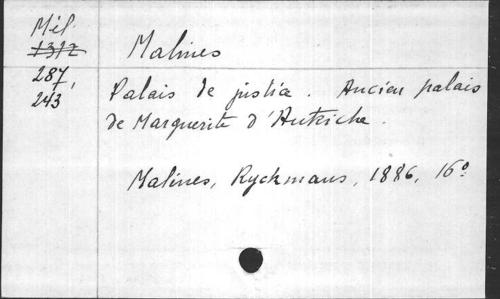 Mél.
1312
287,
243
Malines
Palais de justice. Ancien palais
de Marguerite d'Autriche.
Malines, Ryckmans, 1886, 16°